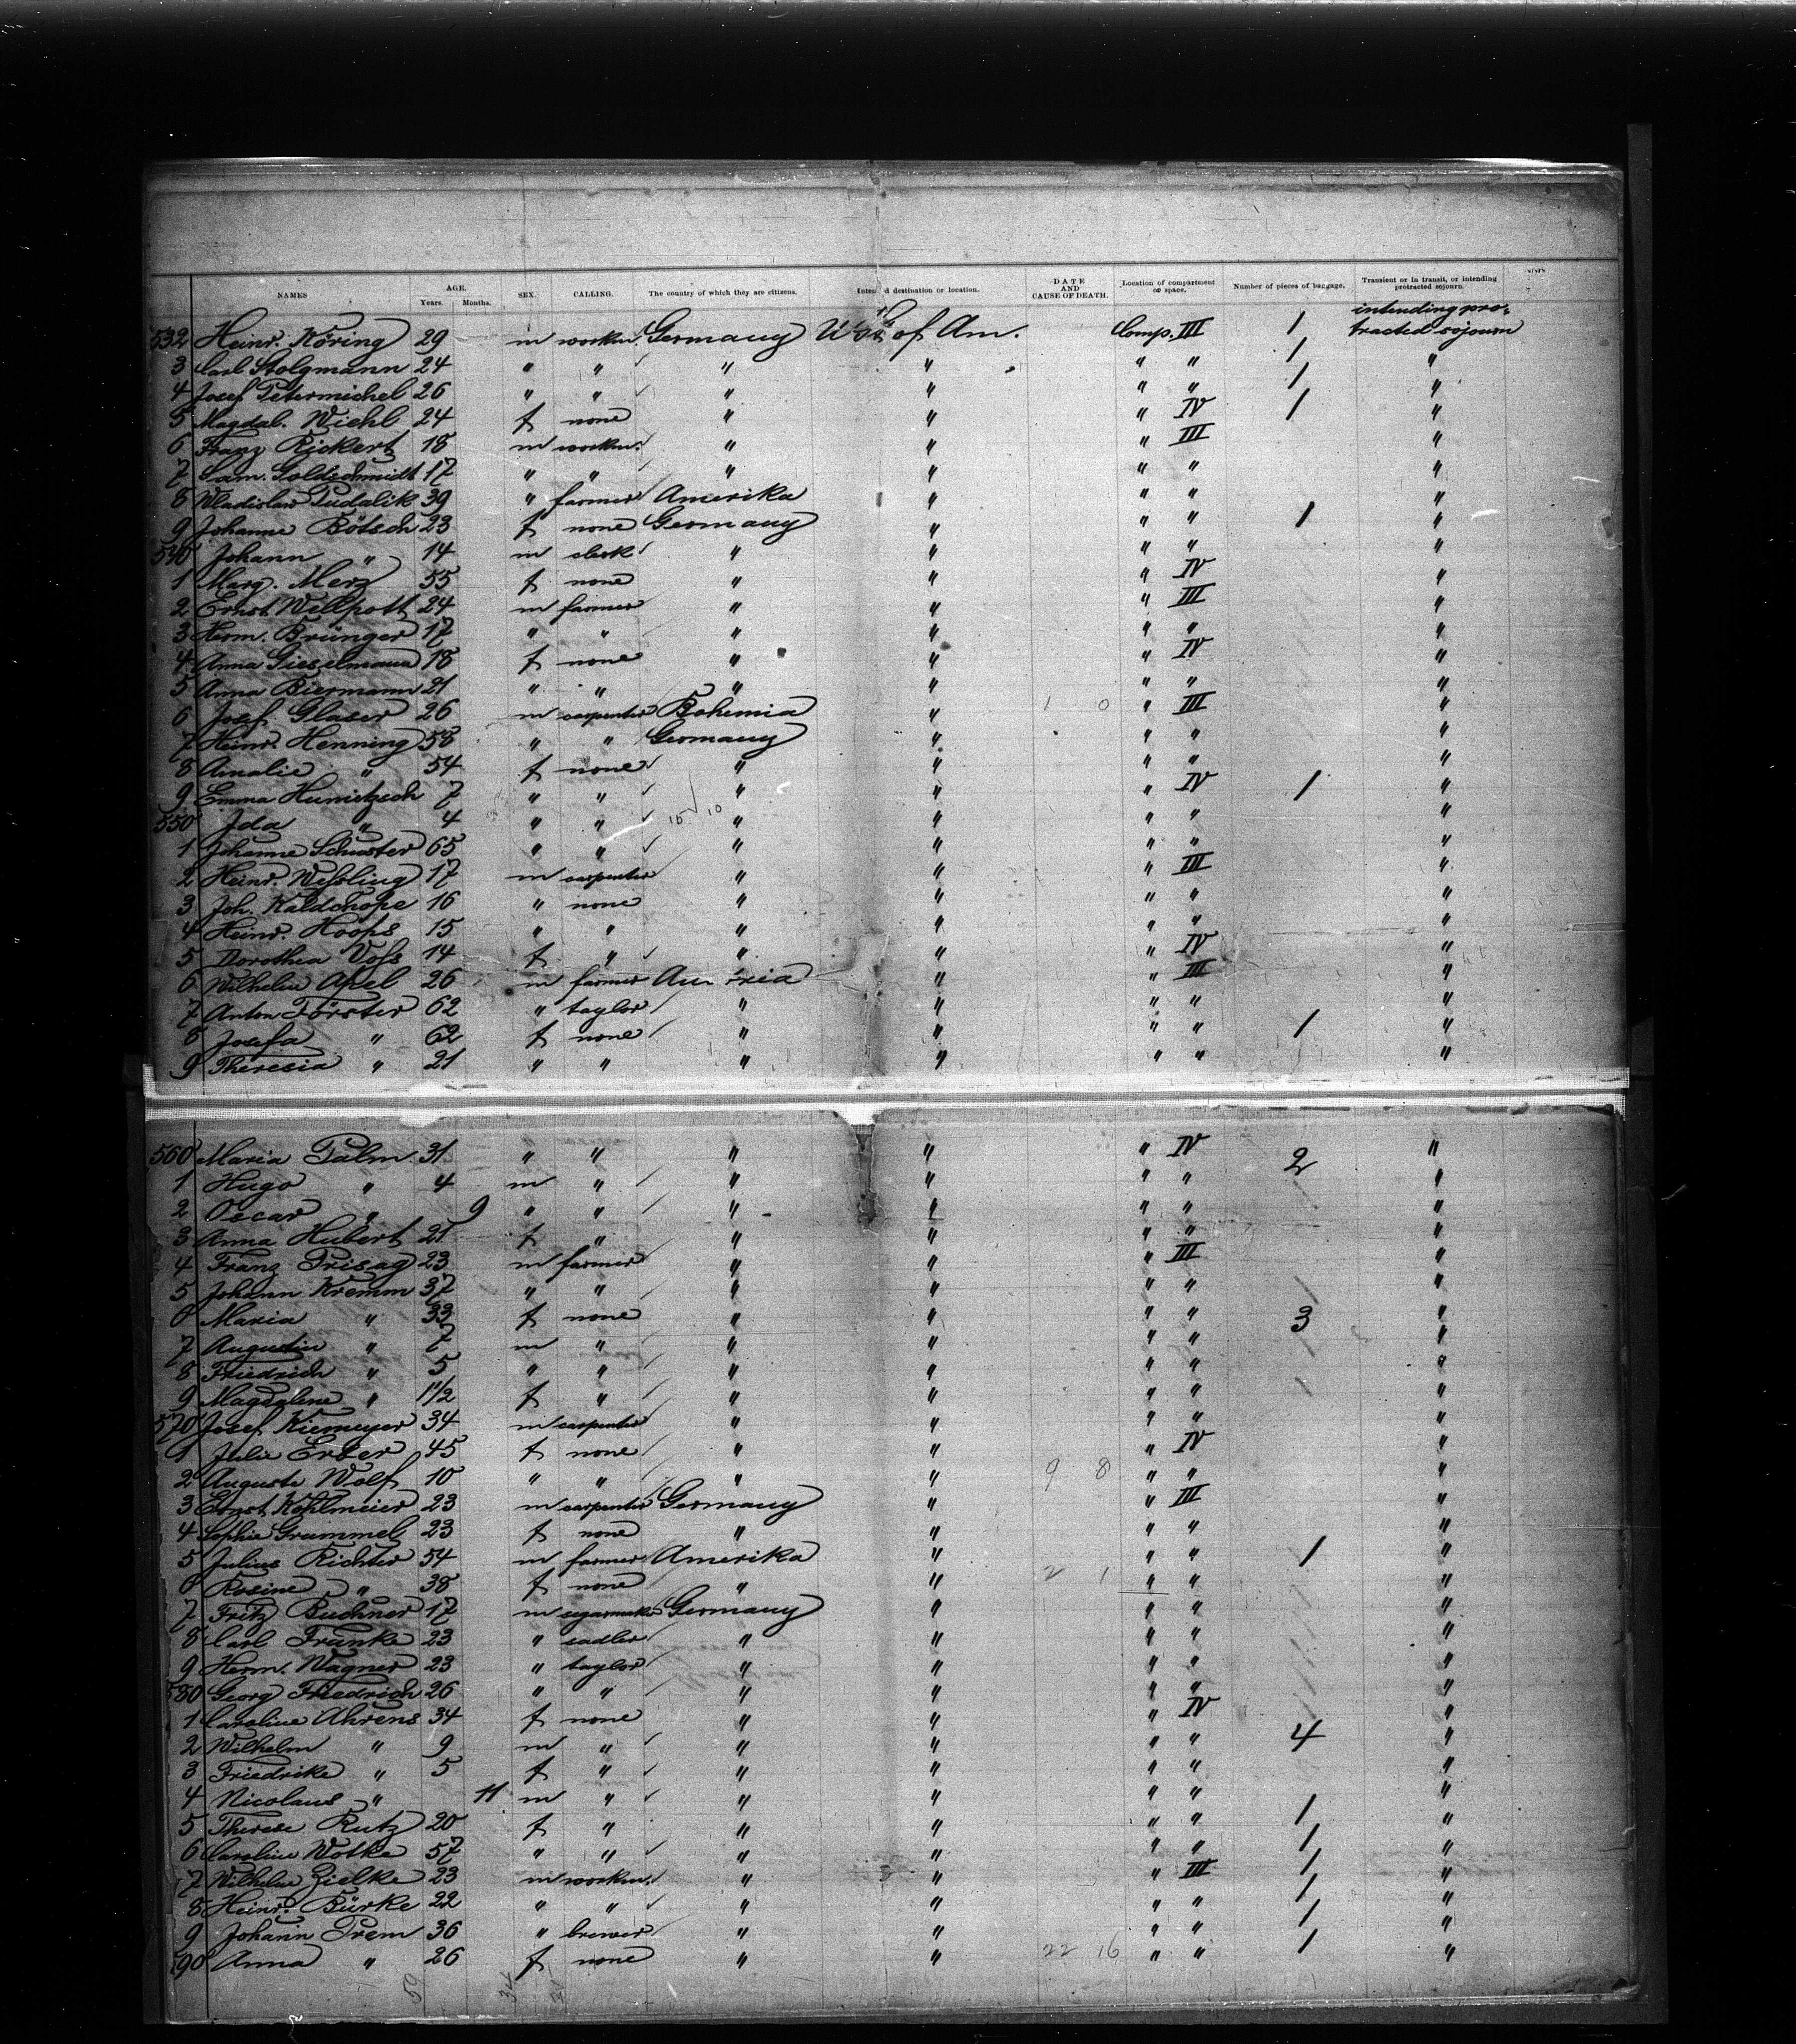 NAMES AGE. Years. Months. SEX. CALLING. The country of which they are citizens. Intended destination or location. DATE AND CAUSE OF DEATH. Location of compartment or space. Number of pieces of baggage. Transient or in transit, or intending protracted sojourn.
532 Heinr. Köring 29 m workm. Germany U. St. of Am. Comp. III 1 intending protracted sojourn
3 Carl Stolgmann 24 " " " " " " 1 "
4 Josef Petermichel 26 " " " " " " 1 "
5 Magdal. Wiehl 24 f none " " " IV 1 "
6 Franz Rickert 18 m workm. " " " III "
7 Sam. Goldschmidt 17 " " " " " " "
8 Wladislaw Pudalik 39 " farmer Amerika " " " "
9 Johanne Bötsch 23 f none Germany " " " 1 "
540 Johann " 14 m clerk " " " " "
1 Marg. Merz 55 f none " " " IV "
2 Ernst Willpott 24 m farmer " " " III "
3 Herm. Brünger 17 " " " " " " "
4 Anna Gieselmann 18 f none " " " IV "
5 Anna Biermann 21 " " " " " " "
6 Josef Glaser 26 m carpenter Bohemia " 1 0 " III "
7 Heinr. Henning 58 " " Germany " " " "
8 Amalie " 54 f none " " " " "
9 Emma Hunietzsch 7 " " " " " IV 1 "
550 Ida " 4 " " 10 10 " " " " "
1 Johanne Schuster 65 " " " " " " "
2 Heinr. Weßling 17 m carpenter " " " III "
3 Joh. Kaldchope 16 " none " " " " "
4 Heinr. Hoops 15 " " " " " " "
5 Dorothea Voß 14 f " " " " IV "
6 Wilhelm Apel 26 m farmer Austria " " III "
7 Anton Förster 62 " taylor " " " " "
8 Josefa " 62 f none " " " " 1 "
9 Theresia " 21 " " " " " " "
560 Maria Palm 31 " " " " " IV 2 "
1 Hugo " 4 m " " " " " "
2 Oscar " 9 " " " " " " "
3 Anna Hubert 21 f " " " " " "
4 Franz Prisag 23 m farmer " " " III "
5 Johann Kremm 37 " " " " " " "
6 Maria " 33 f none " " " " 3 "
7 Augustin " 7 m " " " " " "
8 Friedrich " 5 " " " " " " "
9 Magdalene " 1 1/2 f " " " " " "
570 Josef Kiemeyer 34 m carpenter " " " " "
1 Julie Erber 45 f none " " " IV "
2 Auguste Wolf 10 " " " " 9 8 " " "
3 Ernst Kohlmeier 23 m carpenter Germany " " III "
4 Sophie Grummel 23 f none " " " " "
5 Julius Richter 54 m farmer Amerika " " " 1 "
6 Rosine " 38 f none " " 2 1 " " "
7 Fritz Buchner 17 m cigarmaker Germany " " " "
8 Carl Franke 23 " sadler " " " " "
9 Herm. Wagner 23 " taylor " " " " "
580 Georg Friedrich 26 " " " " " " "
1 Caroline Ahrens 34 f none " " " IV "
2 Wilhelm " 9 m " " " " " 4 "
3 Friedrike " 5 f " " " " " "
4 Nicolaus " 11 m " " " " " "
5 Therese Rutz 20 f " " " " " 1 "
6 Caroline Wotke 57 " " " " " " 1 "
7 Wilhelm Zielke 23 m workm. " " " III 1 "
8 Heinr. Bürke 22 " " " " " " 1 "
9 Johann Prem 36 " brewer " " " " 1 "
90 Anna " 26 f none " " 22 16 " " 1 "
50 34